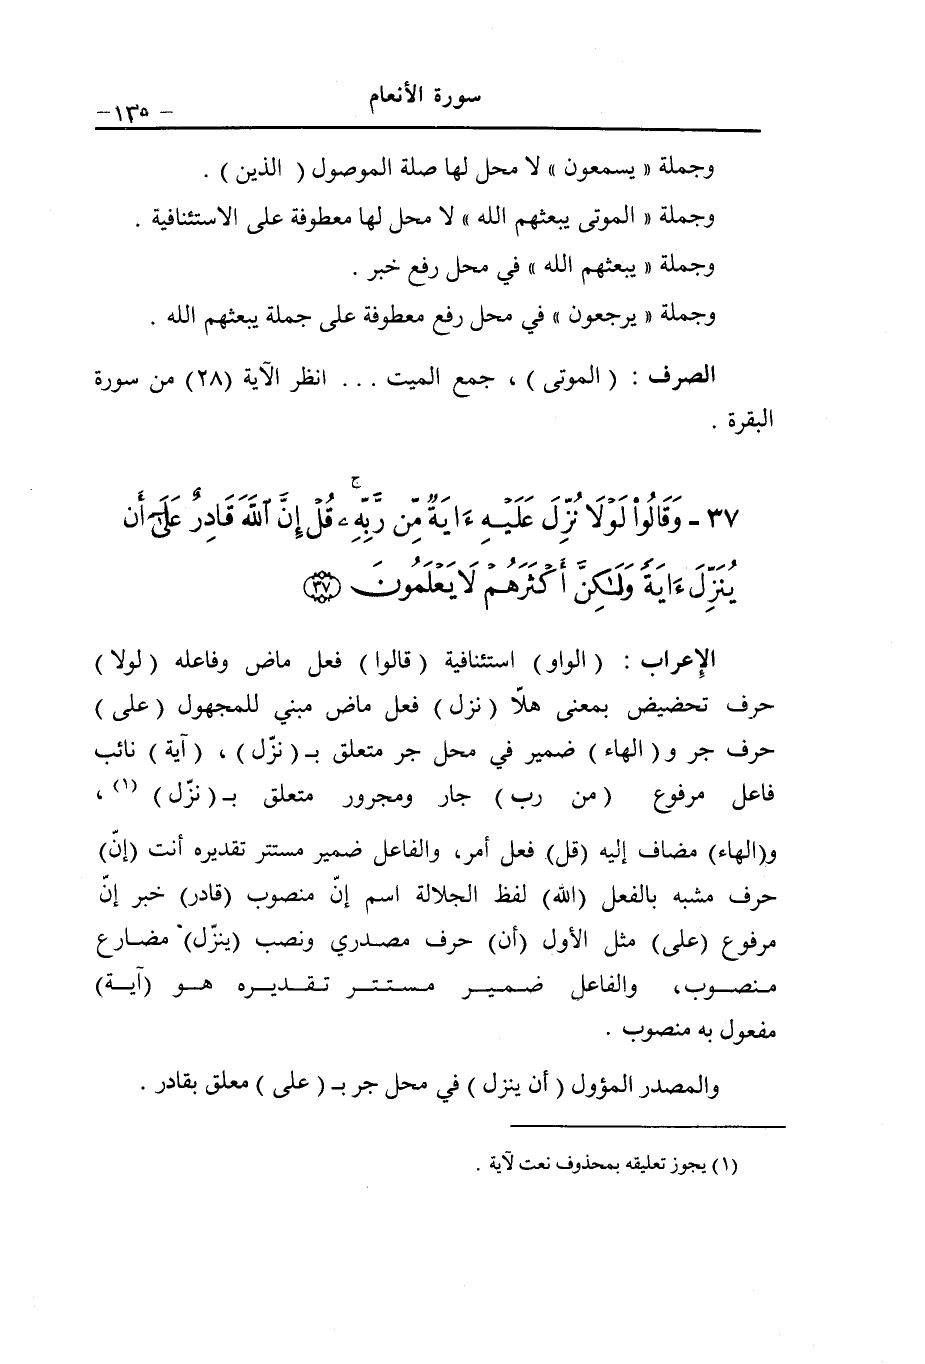 سورة الأنعام
- ١٣٥ -
وجملة « يسمعون » لا محل لها صلة الموصول ( الذين ) .
وجملة « الموتى يبعثهم الله » لا محل لها معطوفة على الاستئنافية .
وجملة « يبعثهم الله » في محل رفع خبر .
وجملة « يرجعون » في محل رفع معطوفة على جملة يبعثهم الله .
الصرف : ( الموتى ) ، جمع الميت ... انظر الآية (٢٨) من سورة
البقرة .
٣٧ - وَقَالُواْ لَوْلَا نُزِّلَ عَلَيْهِ ءَايَةٌ مِّن رَّبِّهِۦ ۚ قُلْ إِنَّ ٱللَّهَ قَادِرٌ عَلَىٰٓ أَن
يُنَزِّلَ ءَايَةً وَلَٰكِنَّ أَكْثَرَهُمْ لَا يَعْلَمُونَ ﴿٣٧﴾
الإعراب : ( الواو ) استئنافية ( قالوا ) فعل ماض وفاعله ( لولا )
حرف تحضيض بمعنى هلّا ( نزل ) فعل ماض مبني للمجهول ( على )
حرف جر و( الهاء ) ضمير في محل جر متعلق بـ( نزّل ) ، ( آية ) نائب
فاعل مرفوع ( من رب ) جار ومجرور متعلق بـ( نزّل ) (١) ،
و(الهاء) مضاف إليه (قل) فعل أمر، والفاعل ضمير مستتر تقديره أنت (إنّ)
حرف مشبه بالفعل (الله) لفظ الجلالة اسم إنّ منصوب (قادر) خبر إنّ
مرفوع (على) مثل الأول (أن) حرف مصدري ونصب (ينزّل) مضارع
منصوب، والفاعل ضمير مستتر تقديره هو (آية)
مفعول به منصوب .
والمصدر المؤول ( أن ينزل ) في محل جر بـ ( على ) معلق بقادر .
(١) يجوز تعليقه بمحذوف نعت لآية .